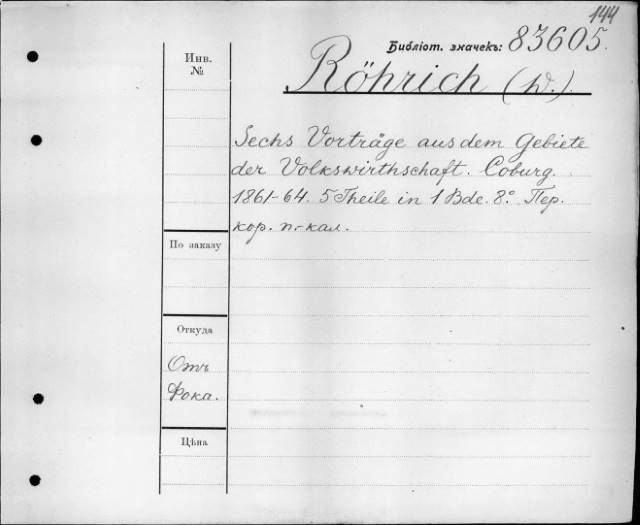 144
Библіот. значекъ: 83605.
Инв.
№
Röhrich (W.).
Sechs Vorträge aus dem Gebiete
der Volkswirthschaft. Coburg.
1861-64. 5 Theile in 1 Bde. 8º. Пер.
кор. п.-кал.
По заказу
Откуда
Отъ
Фока.
Цѣна